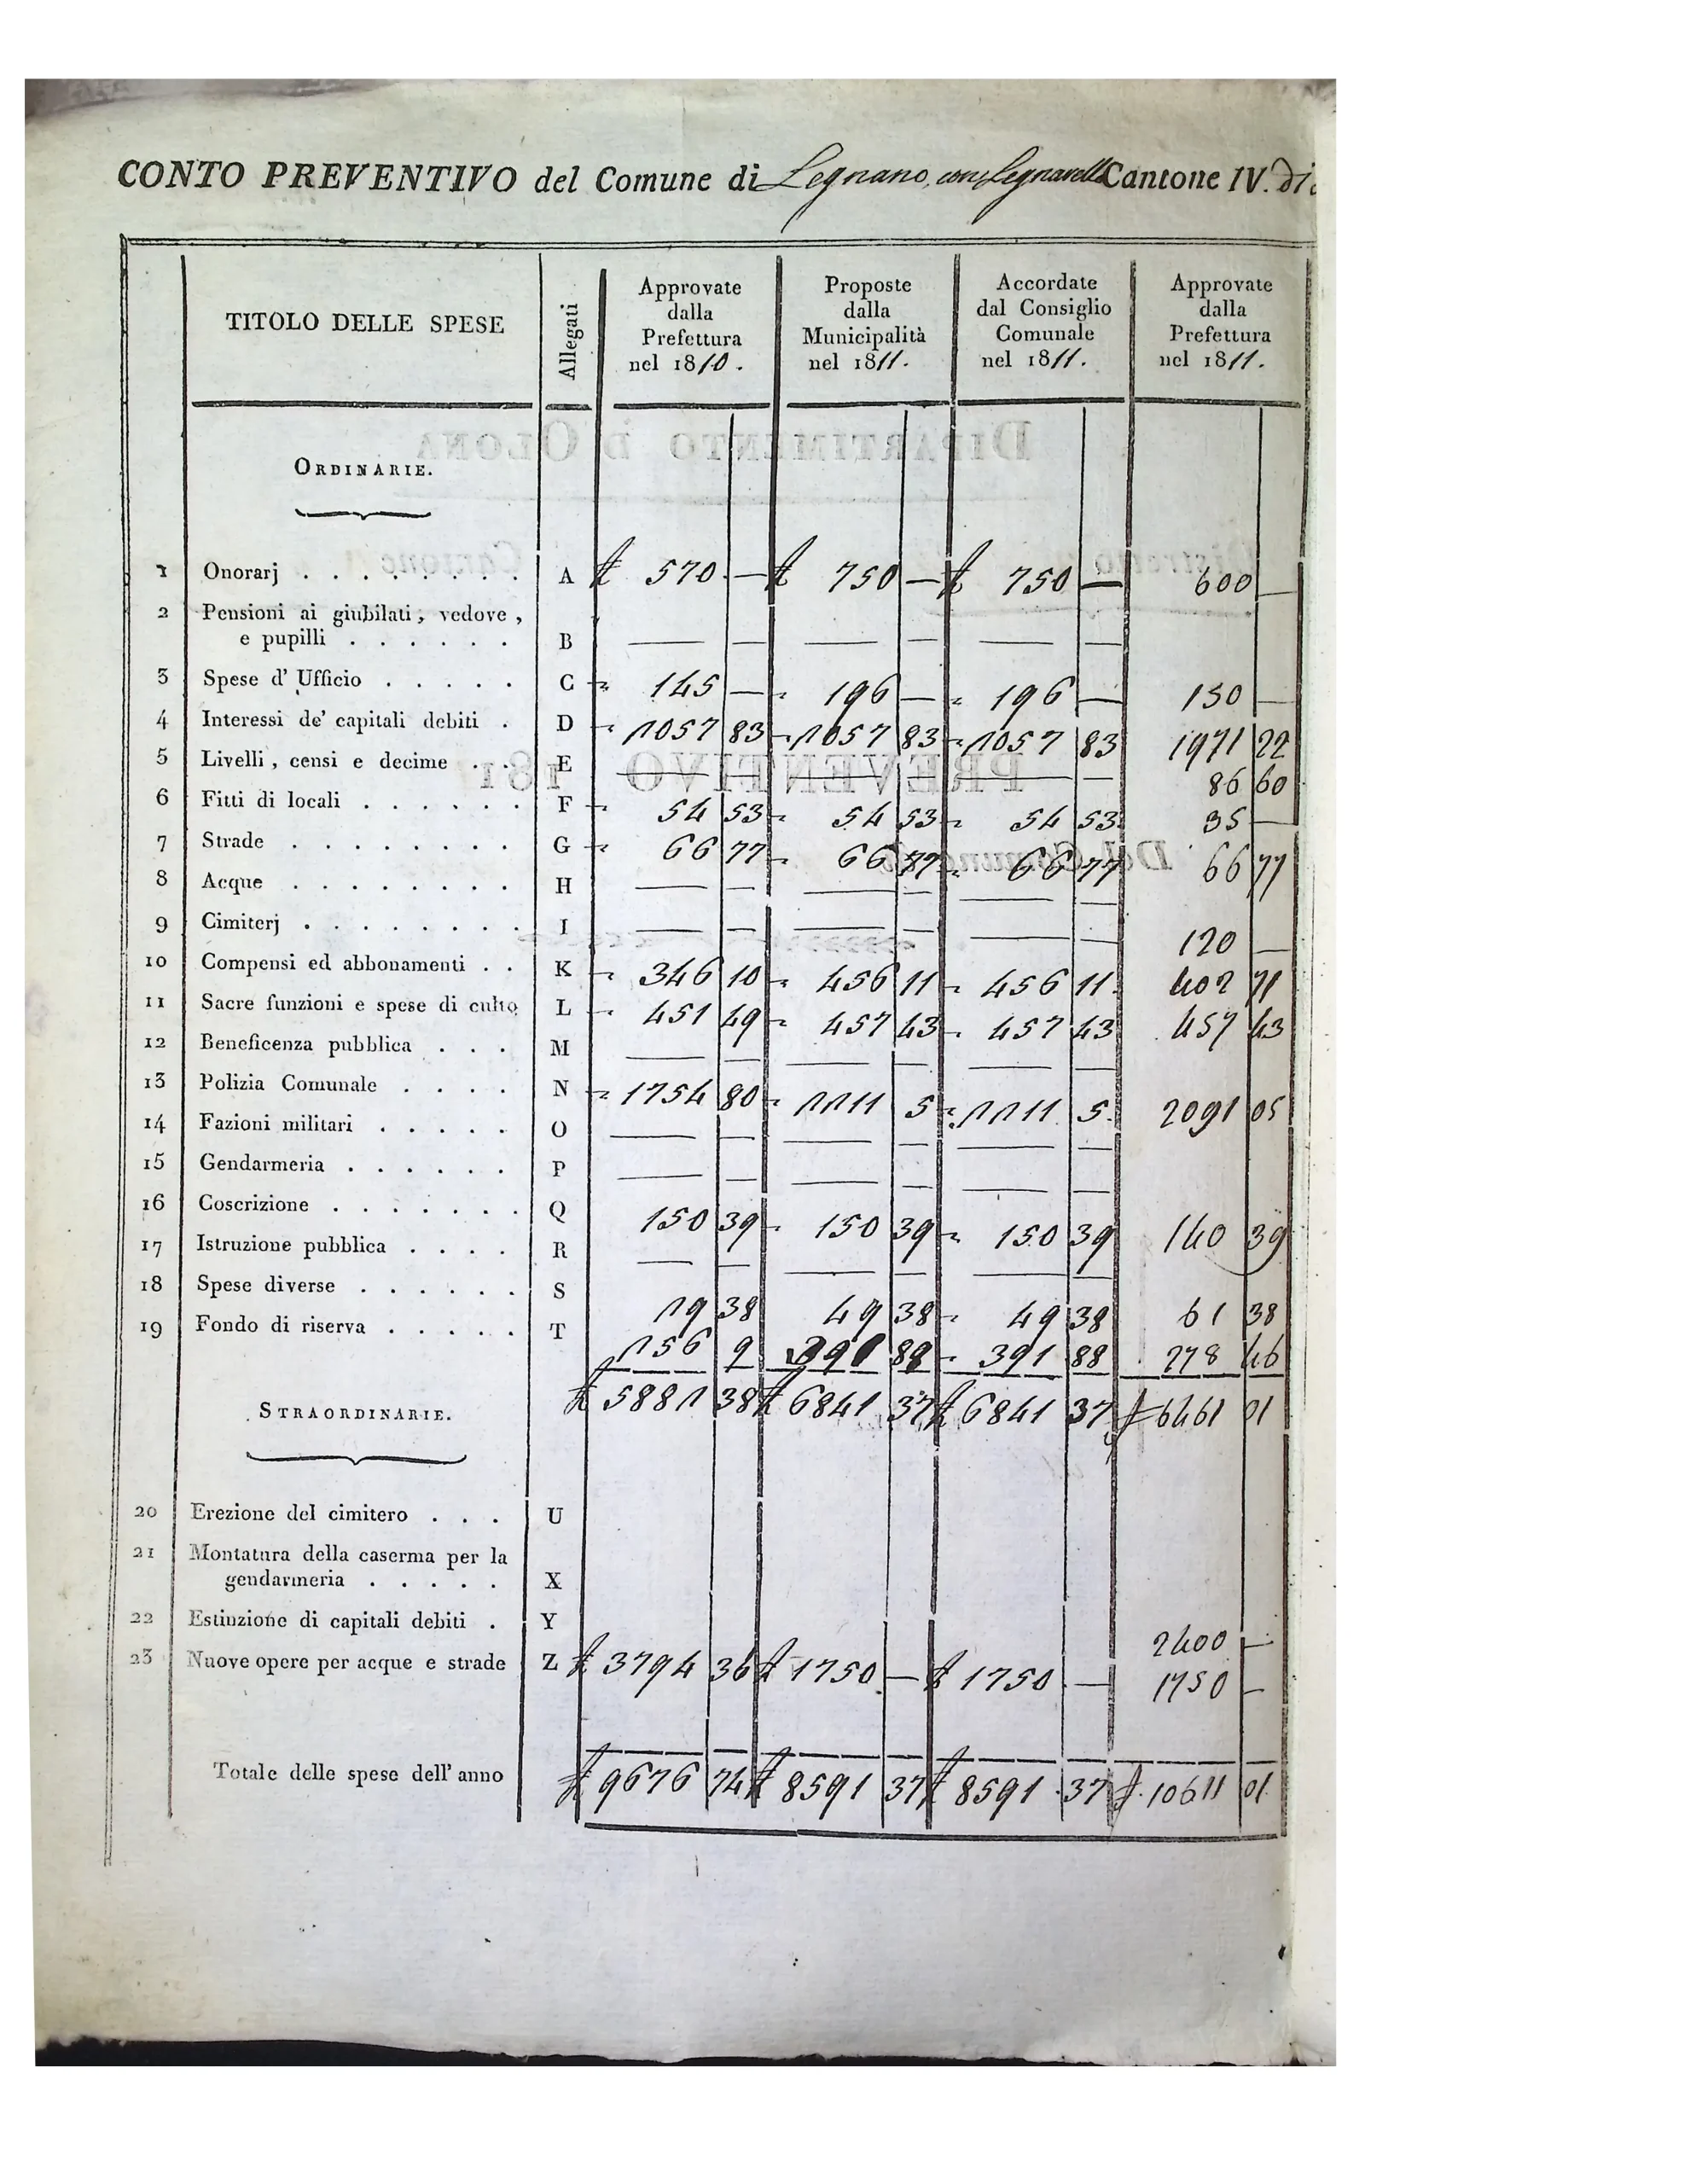 CONTO PREVENTIVO del Comune di Legnano, con Legnarello Cantone IV. di
TITOLO DELLE SPESE
Allegati
Approvate
dalla
Prefettura
nel 1810.
Proposte
dalla
Municipalità
nel 1811.
Accordate
dal Consiglio
Comunale
nel 1811.
Approvate
dalla
Prefettura
nel 1811.
ORDINARIE.
1 Onorarj . . . . . . . . A £ 570 — £ 750 — £ 750 — 600 —
2 Pensioni ai giubilati, vedove,
e pupilli . . . . . . B — — — — — —
3 Spese d' Ufficio . . . . . C 145 — 196 — 196 — 150 —
4 Interessi de' capitali debiti . D 2057 83 2057 83 2057 83 1971 22
5 Livelli, censi e decime . . . E — — — — — — 86 60
6 Fitti di locali . . . . . . F 54 53 54 53 54 53 35 —
7 Strade . . . . . . . . G 66 77 66 77 66 77 66 77
8 Acque . . . . . . . . H — — — — — —
9 Cimiterj . . . . . . . . I — — — — — — 120 —
10 Compensi ed abbonamenti . . K 346 10 456 11 456 11 402 71
11 Sacre funzioni e spese di culto L 451 49 457 43 457 43 457 43
12 Beneficenza pubblica . . . M — — — — — —
13 Polizia Comunale . . . . N 1754 80 2211 5 2211 5 2091 05
14 Fazioni militari . . . . . O — — — — — —
15 Gendarmeria . . . . . . P — — — — — —
16 Coscrizione . . . . . . . Q 150 39 150 39 150 39 140 39
17 Istruzione pubblica . . . . R — — — — — —
18 Spese diverse . . . . . . S 29 38 49 38 49 38 61 38
19 Fondo di riserva . . . . . T 256 9 391 88 391 88 278 46
£ 5882 38 £ 6841 37 £ 6841 37 £ 6461 01
STRAORDINARIE.
20 Erezione del cimitero . . . U
21 Montatura della caserma per la
gendarmeria . . . . . X
22 Estinzione di capitali debiti . Y 2400 —
23 Nuove opere per acque e strade Z £ 3794 36 £ 1750 — £ 1750 — 1750 —
Totale delle spese dell' anno £ 9676 74 £ 8591 37 £ 8591 37 £ 10611 01